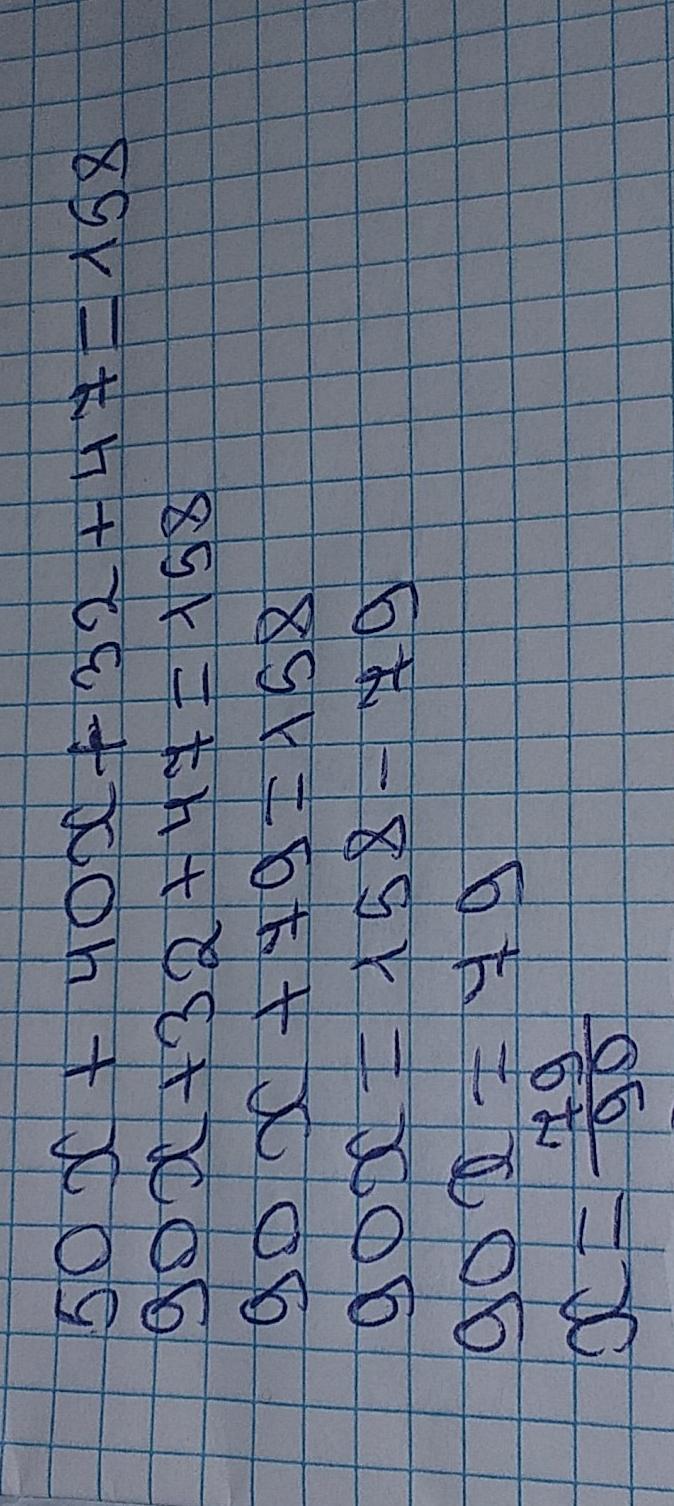 50x + 40x + 32 + 47 = 158
90x + 32 + 47 = 158
90x + 79 = 158
90x = 158 - 79
90x = 79
x = 79/90